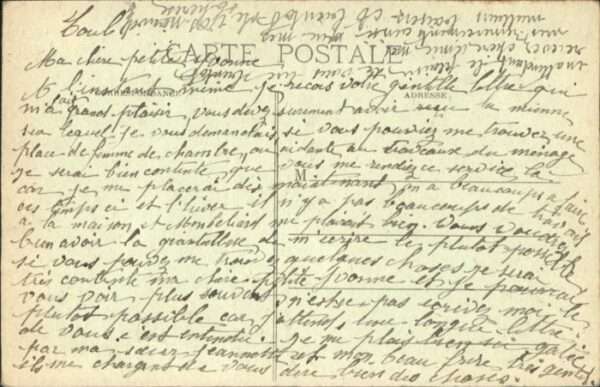 Toul
CARTE POSTALE
CORRESPONDANCE
ADRESSE
M
Ma chère petite Yvonne
A l'instant même je recois votre gentille lettre qui
m'a fait grand plaisir, vous devez surement avoir recu la mienne
sur laquel je vous demandais si vous pouviez me trouver une
place de femme de chambre, ou aidante au travaux du ménage
je serai bien contente que vous me rendiez se service la
car je me placerai dès maintenant, on a beaucoup a faire
ces temps ci et l'hiver il n'y a pas beaucoups de
a la maison et Montbeliard me plairait bien. Vous voudrez
bien avoir la de m'ecrire le plutot possible
si vous pouvez me trouver quelques choses je serai
très contente ma chère petite Yvonne et je pourrai
vous voir plus souvent n'est se pas ecrivez moi le
plutot possible car j'attends une longue lettre
de vous c'est entendu je me plais bien ici
par ma soeur Jeannette et mon beau frère très gentils
ils me chargent de vous dire bien des choses.
en attendant le plaisir de vous lire
recevez chère amie mes
plus sincères
meilleurs baisers et bientot de vos